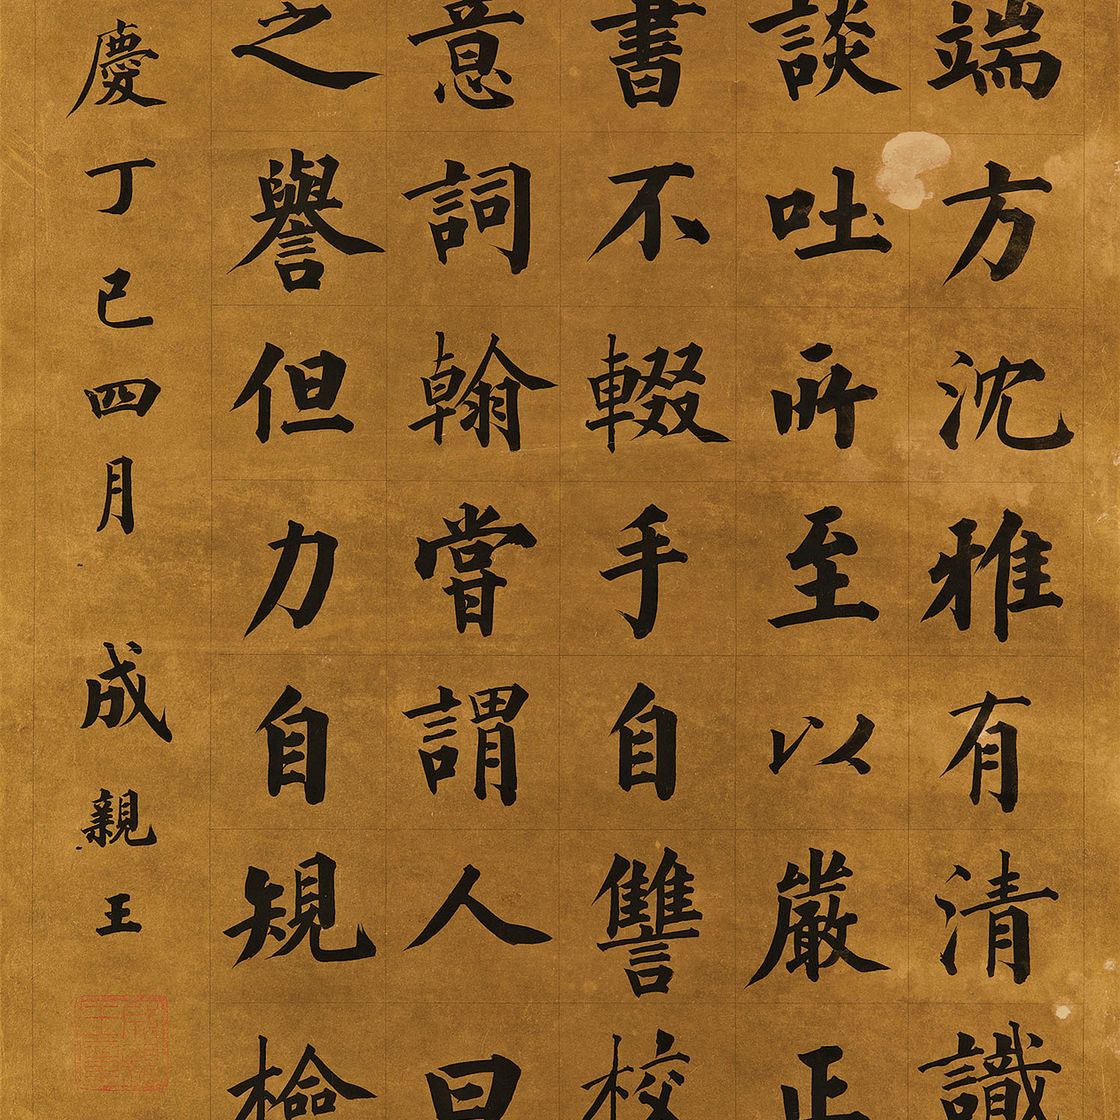 端方沈雅有清識
談吐所至以嚴正
書不輟手自讐校
意詞翰嘗謂人曰
之譽但力自規檢
慶丁巳四月 成親王